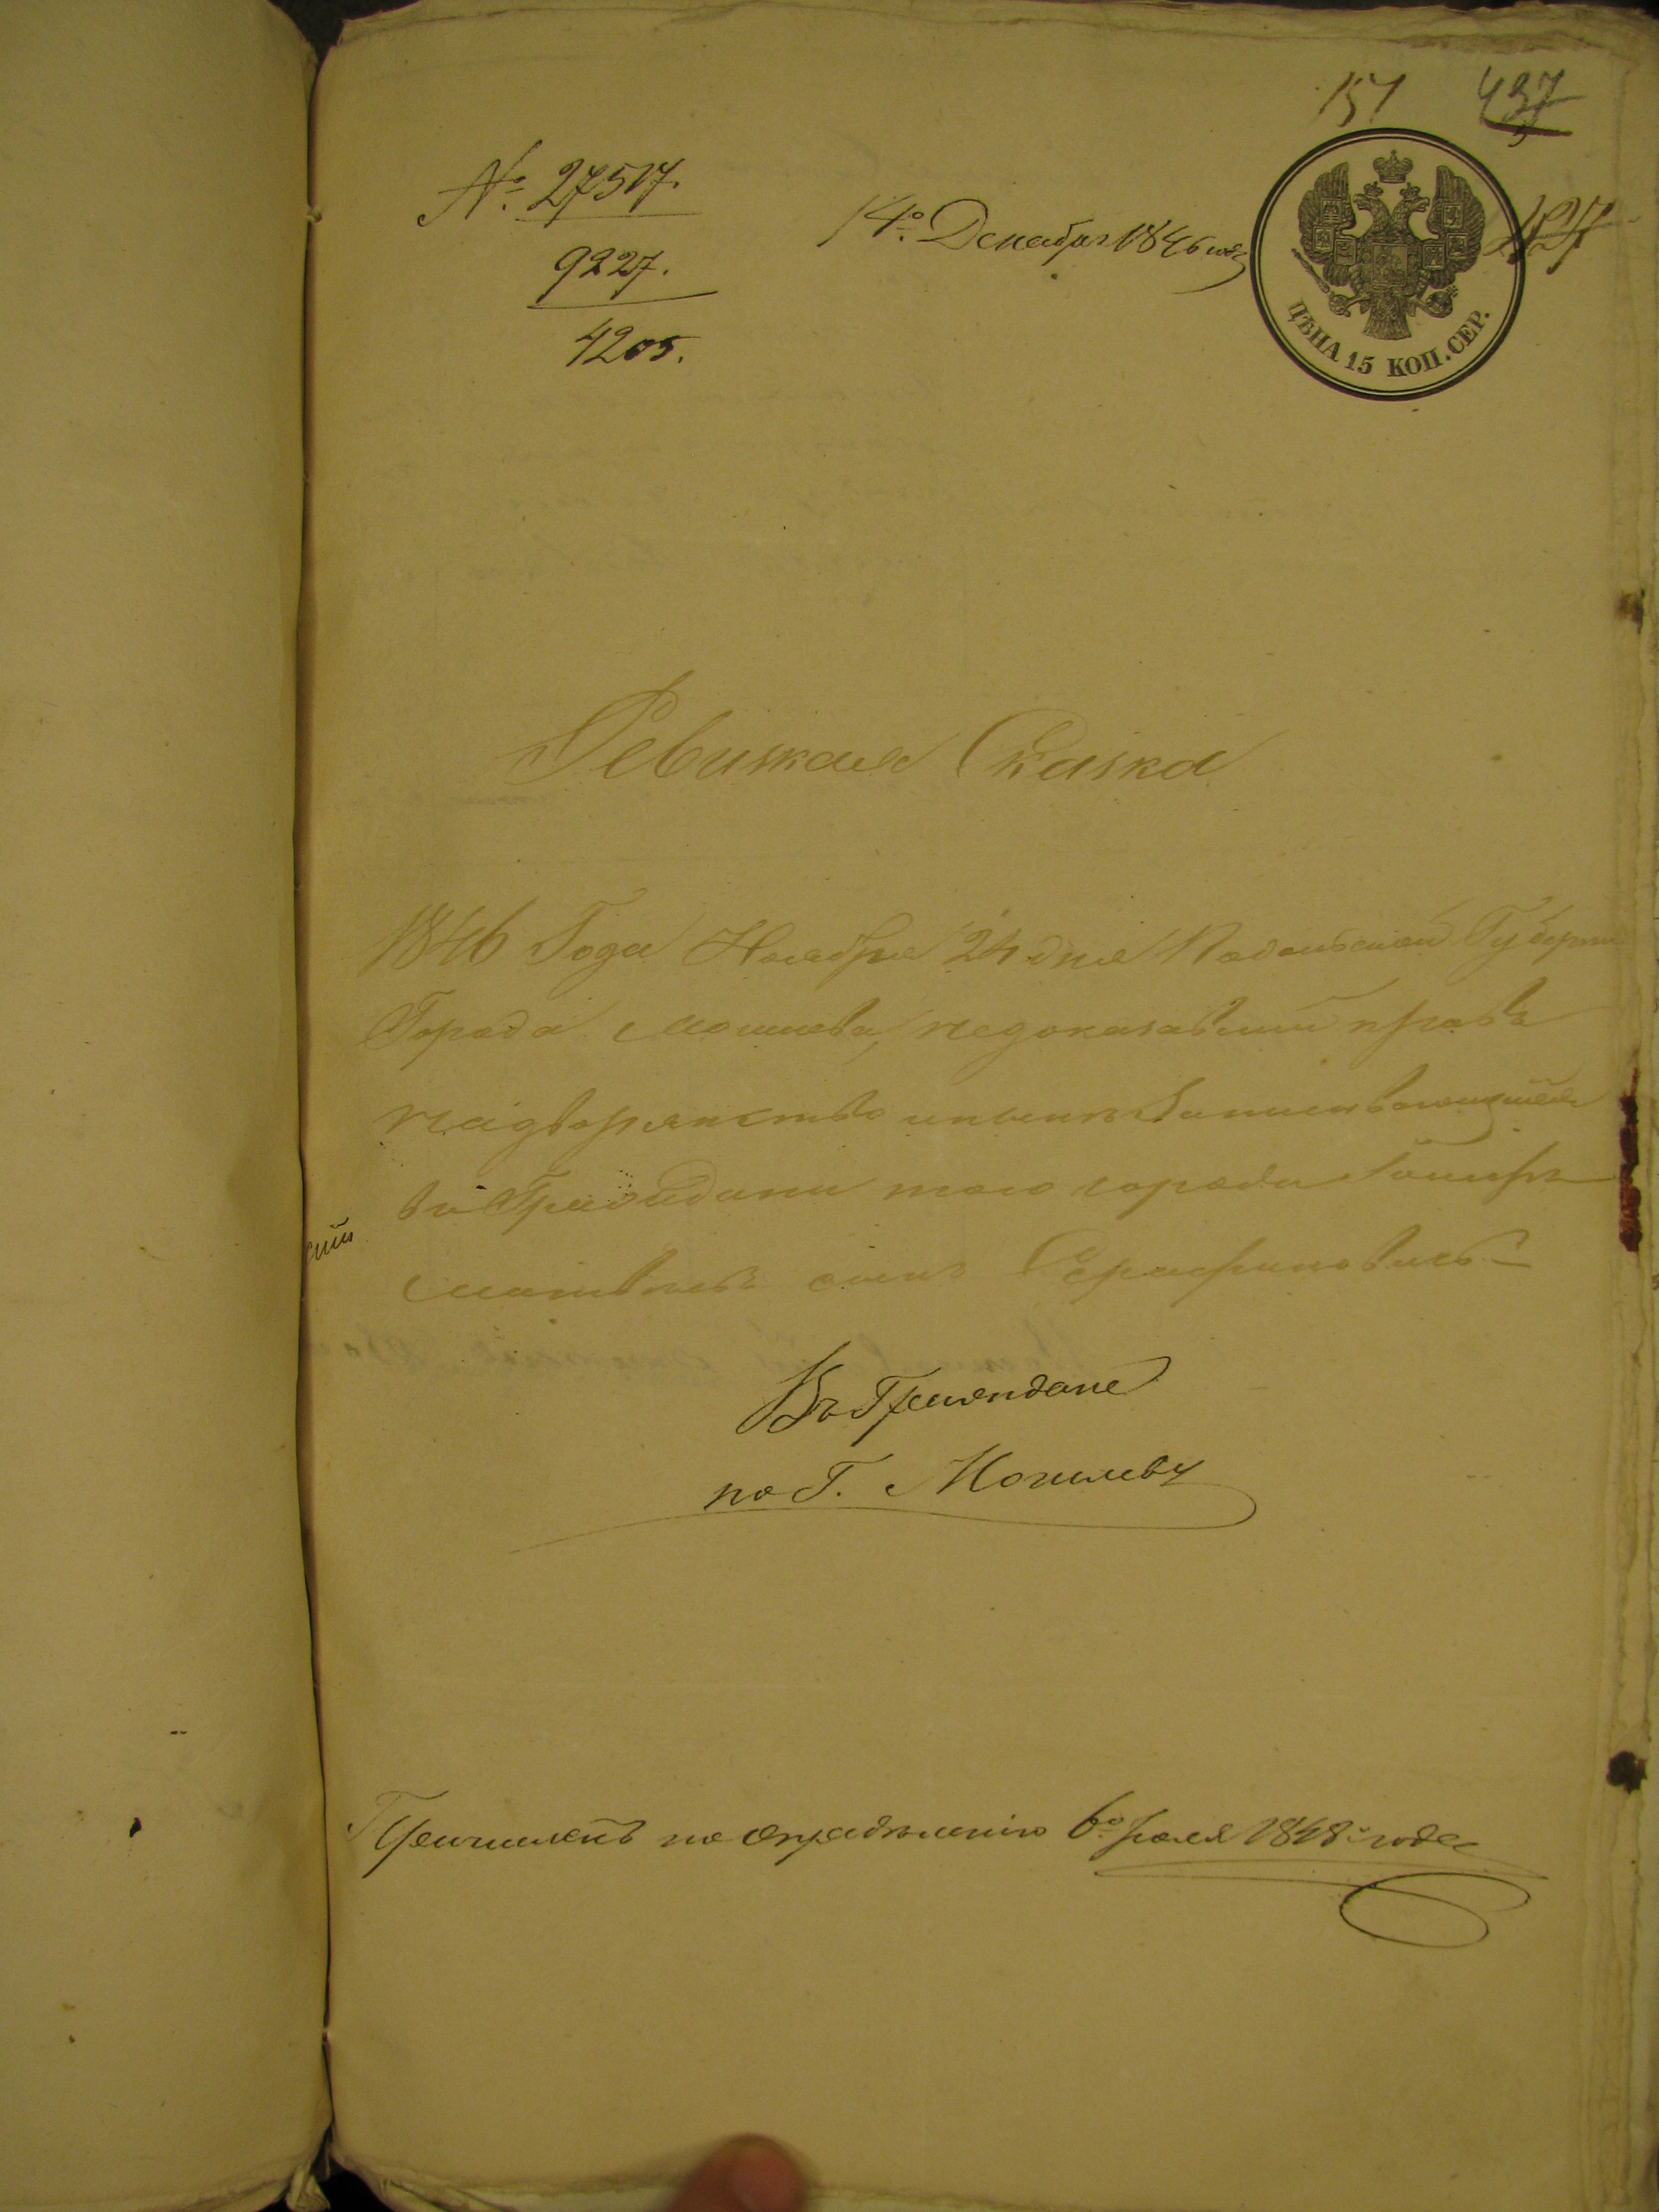 151 437
№ 27517.
9227.
4205.
14го Декабря 1846 года
ЦѢНА 15 КОП. СЕР.
Ревизкая Сказка
1846 Года Ноября 24 дня Подольской Губернии
Города Могилева, недоказавший правъ
на дворянство и нынѣ записывающийся
въ Граждани того города
Матвѣевъ сынъ Серафиновичъ
Въ Граждане
по Г. Могилеву
Причисленъ по опредѣленію 6го Іюля 1848го года